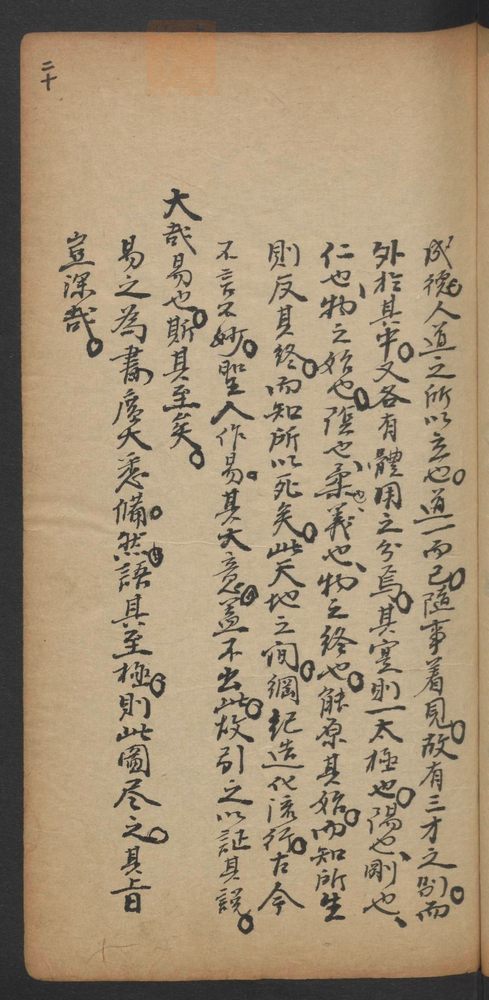 成德人道之所以立也。道一而已。隨事着見。故有三才之別。而
外於其中。又各有體用之分焉。其實則一太極也。陽也、剛也、
仁也、物之始也。陰也、柔也、義也、物之終也。能原其始。而知所生
則反其終。而知所以死矣。此天地之间。綱紀造化。流行古今
不言之妙。聖人作易。其大意。蓋不出此。故引之以証其說。
大哉易也。斯其至矣。
易之為書。廣大悉備。然語其至極。則此圖尽之。其旨
豈深哉。
二十